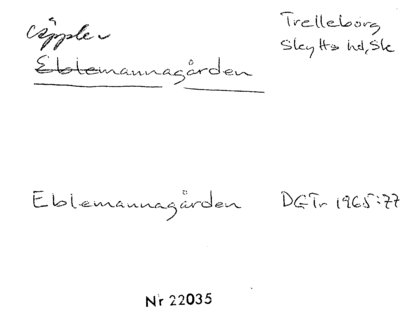 Äpple
Trelleborg
Eblemannagården
Skytts hd, Sk
Eblemannagården DGTr 1965:77
Nr 22035